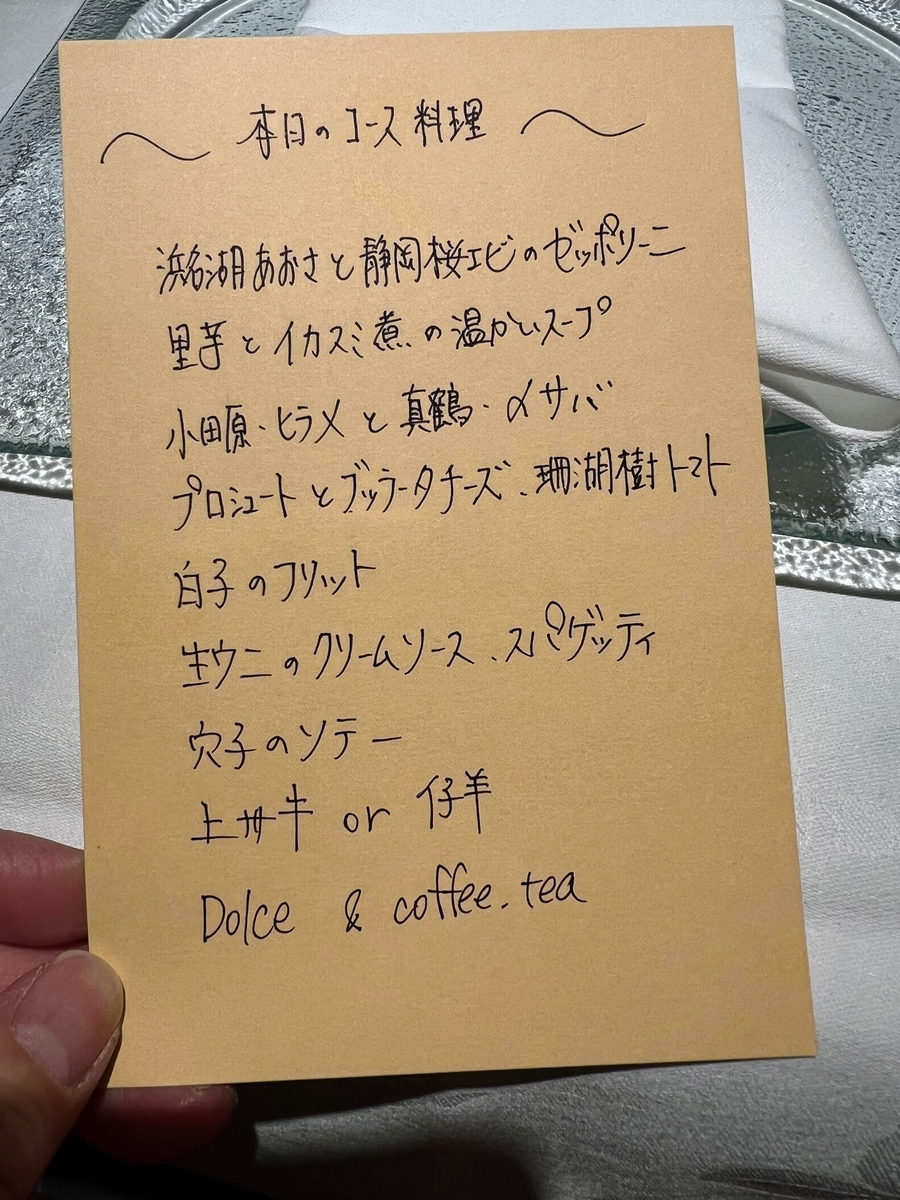 〜 本日のコース料理 〜
浜名湖あおさと静岡桜エビのゼッポリーニ
里芋とイカスミ煮の温かいスープ
小田原・ヒラメと真鶴・〆サバ
プロシュートとブッラータチーズ、珊瑚樹トマト
白子のフリット
生ウニのクリームソース、スパゲッティ
穴子のソテー
上州牛 or 仔羊
Dolce & coffee.tea